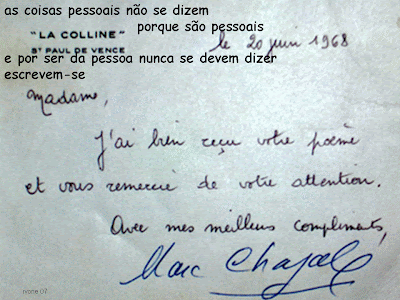 as coisas pessoais não se dizem
porque são pessoais
"LA COLLINE"
ST PAUL DE VENCE
le 20 juin 1968
e por ser da pessoa nunca se devem dizer
escrevem-se
Madame,
J'ai bien reçu votre poème
et vous remercie de votre attention.
Avec mes meilleurs compliments,
Marc Chagall
ivone 07